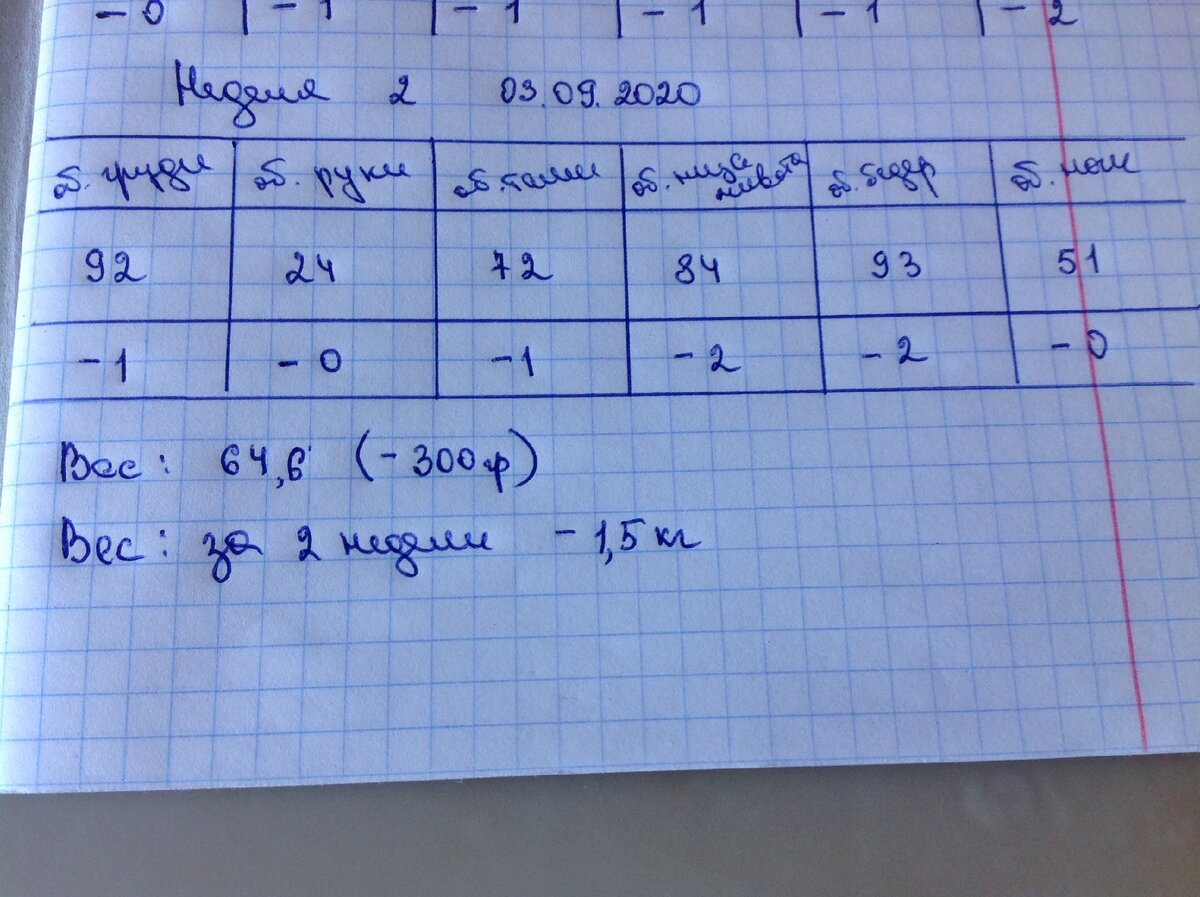 -0 | -1 | -1 | -1 | -1 | -2
Неделя 2 03.09.2020
Об. груди | Об. руки | Об. талии | Об. низа живота | Об. бедер | Об. ноги
92 | 24 | 72 | 84 | 93 | 51
-1 | -0 | -1 | -2 | -2 | -0
Вес: 64,6 (-300гр)
Вес: за 2 недели -1,5 кг